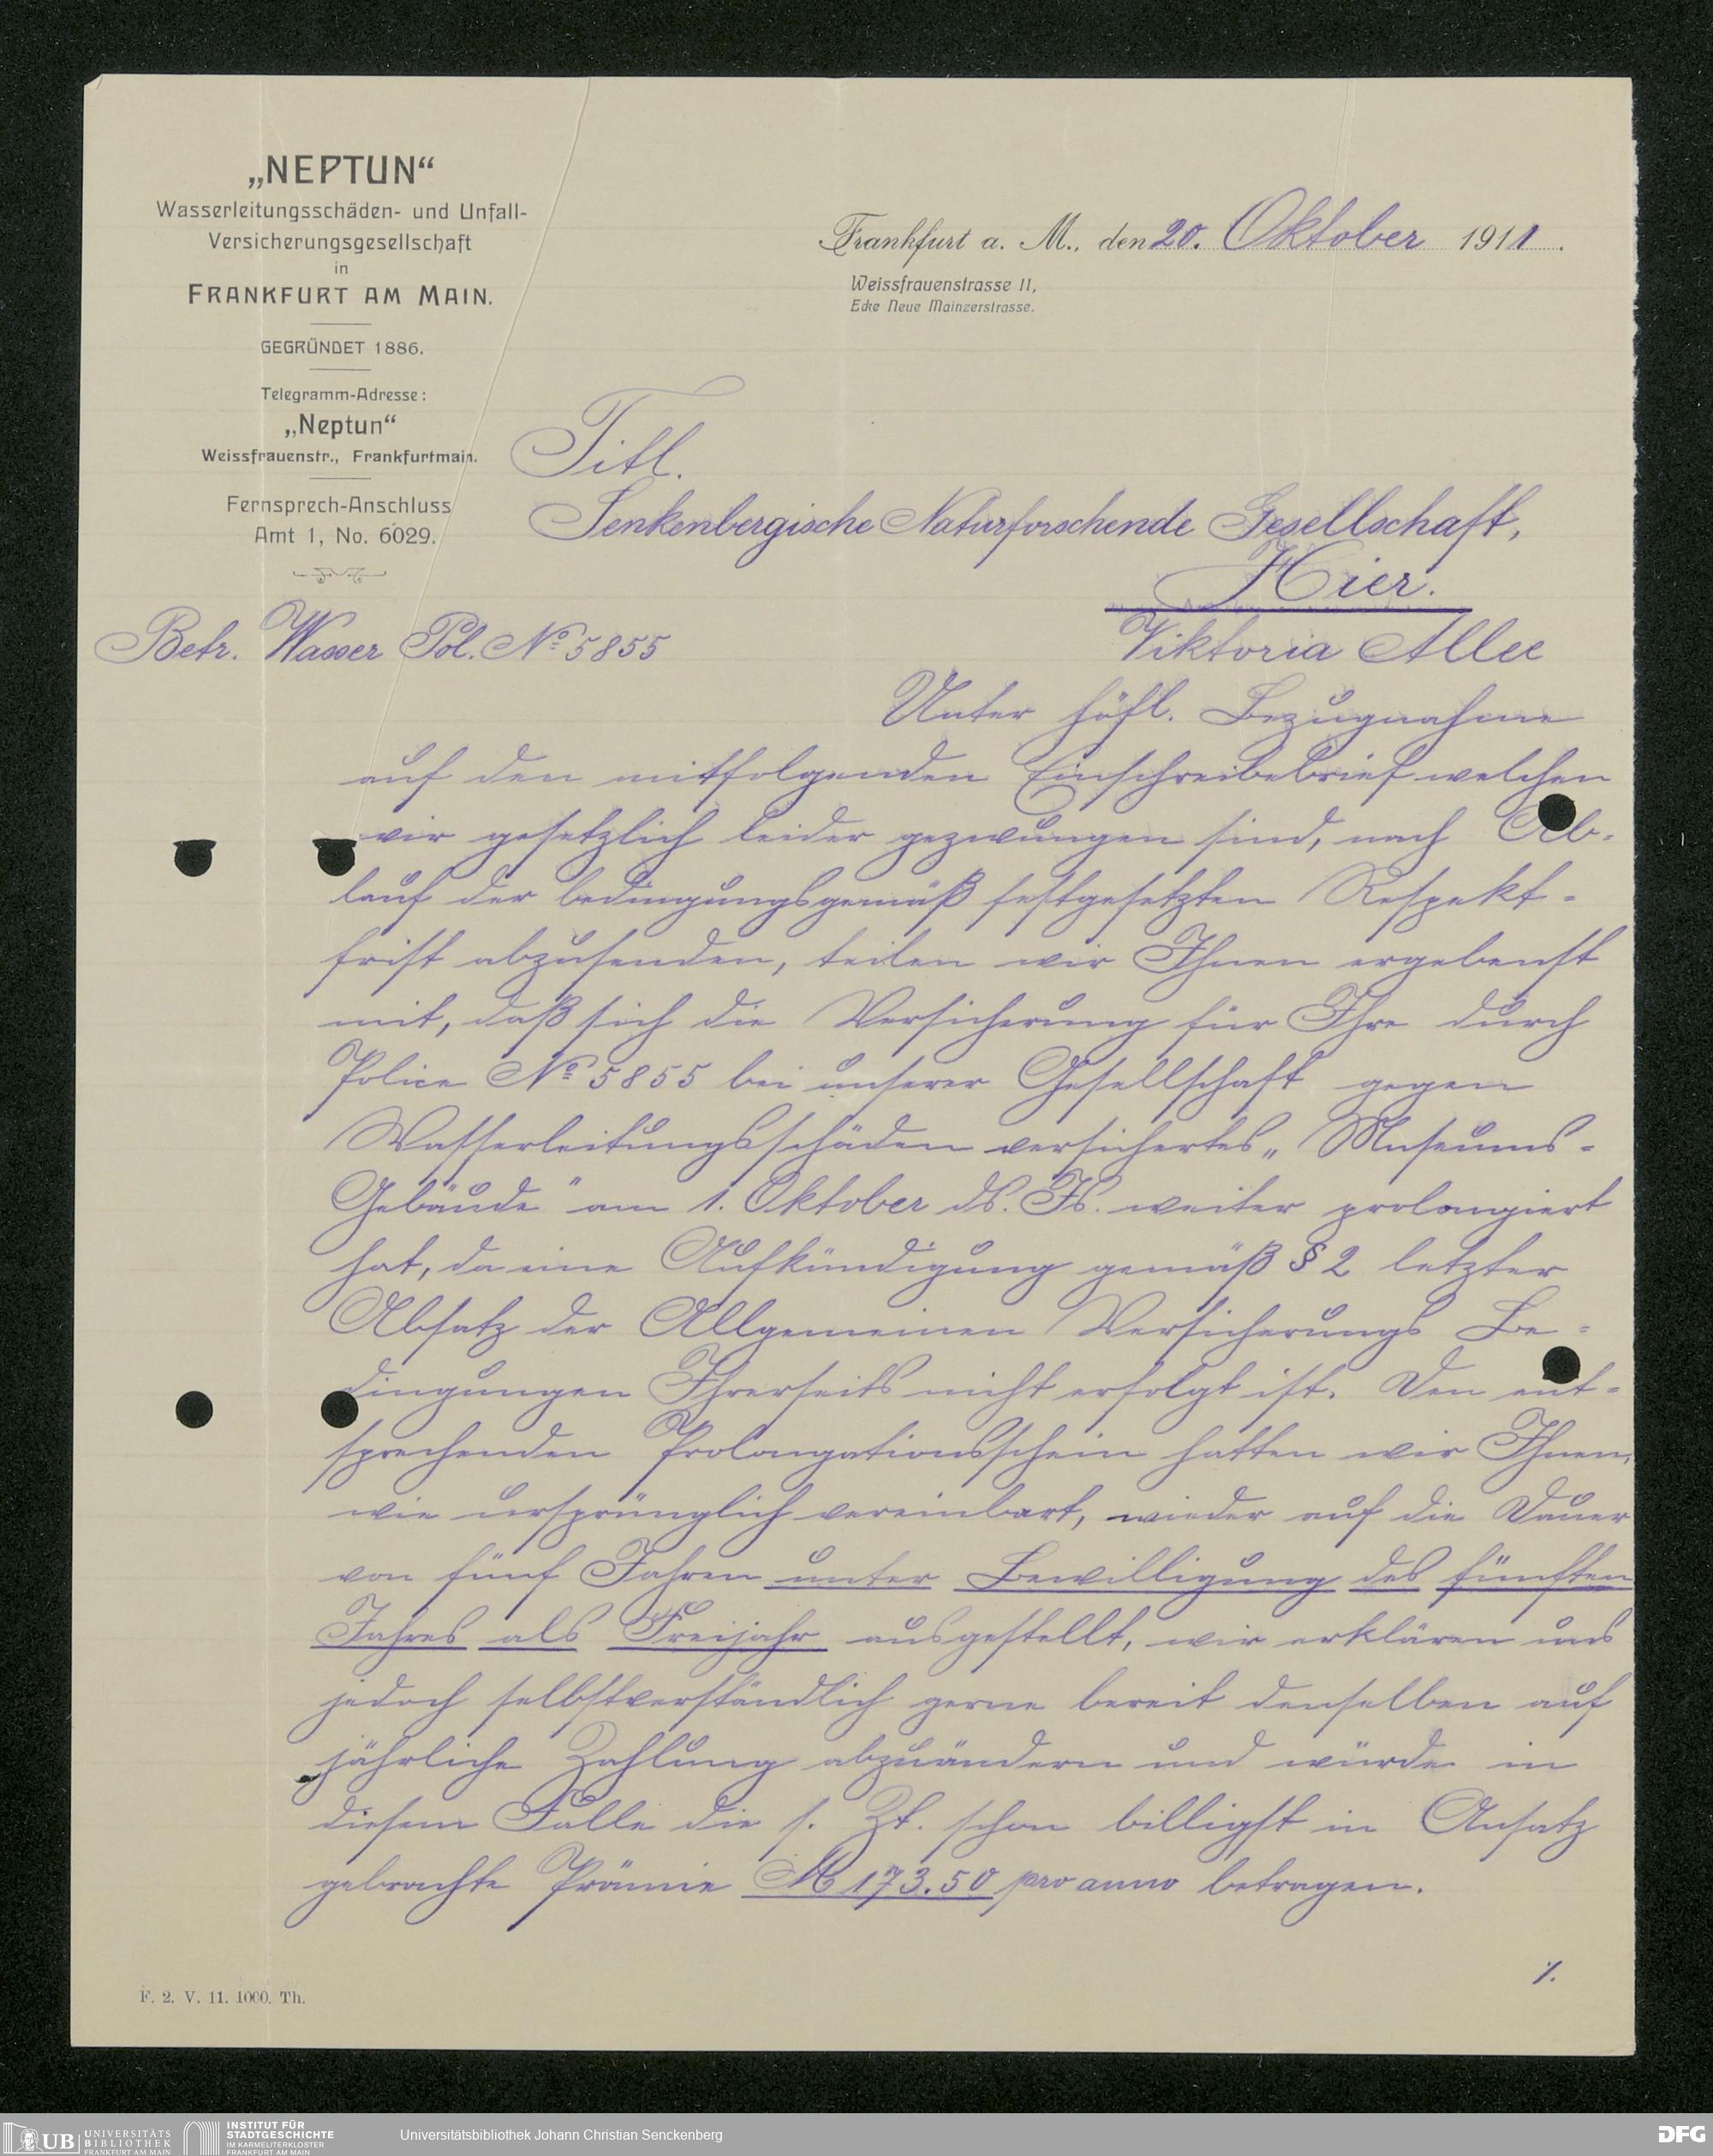 „NEPTUN“
Wasserleitungsschäden- und Unfall-
Versicherungsgesellschaft
in
FRANKFURT AM MAIN.
GEGRÜNDET 1886.
Telegramm-Adresse:
„Neptun“
Weissfrauenstr., Frankfurtmain.
Fernsprech-Anschluss
Amt 1, No. 6029.
Frankfurt a. M., den 20. Oktober 1911.
Weissfrauenstrasse 11,
Ecke Neue Mainzerstrasse.
Titl.
Senkenbergische Naturforschende Gesellschaft,
Hier.
Viktoria Allee
Betr. Wasser Pol. No 5855
Unter höfl. Bezugnahme
auf den mitfolgenden Einschreibebrief welchen
wir gesetzlich leider gezwungen sind, nach Ab-
lauf der bedingungsgemäß festgesetzten Respekt-
frist abzusenden, teilen wir Ihnen ergebenst
mit, daß sich die Versicherung für Ihre durch
Police No 5855 bei unserer Gesellschaft gegen
Wasserleitungsschäden versichertes „Museums-
Gebäude“ am 1. Oktober ds. Js. weiter prolongiert
hat, da eine Aufkündigung gemäß § 2 letzter
Absatz der Allgemeinen Versicherungs Be-
dingungen Ihrerseits nicht erfolgt ist. Den ent-
sprechenden Prolongationsschein hatten wir Ihnen,
wie ursprünglich vereinbart, wieder auf die Dauer
von fünf Jahren unter Bewilligung des fünften
Jahres als Freijahr ausgestellt, wir erklären uns
jedoch selbstverständlich gerne bereit denselben auf
jährliche Zahlung abzuändern und würde in
diesem Falle die s. Zt. schon billigst in Ansatz
gebrachte Prämie M 173.50 pro anno betragen.
%.
F. 2. V. 11. 1000. Th.
UB UNIVERSITÄTS
BIBLIOTHEK
FRANKFURT AM MAIN
INSTITUT FÜR
STADTGESCHICHTE
IM KARMELITERKLOSTER
FRANKFURT AM MAIN
Universitätsbibliothek Johann Christian Senckenberg
DFG